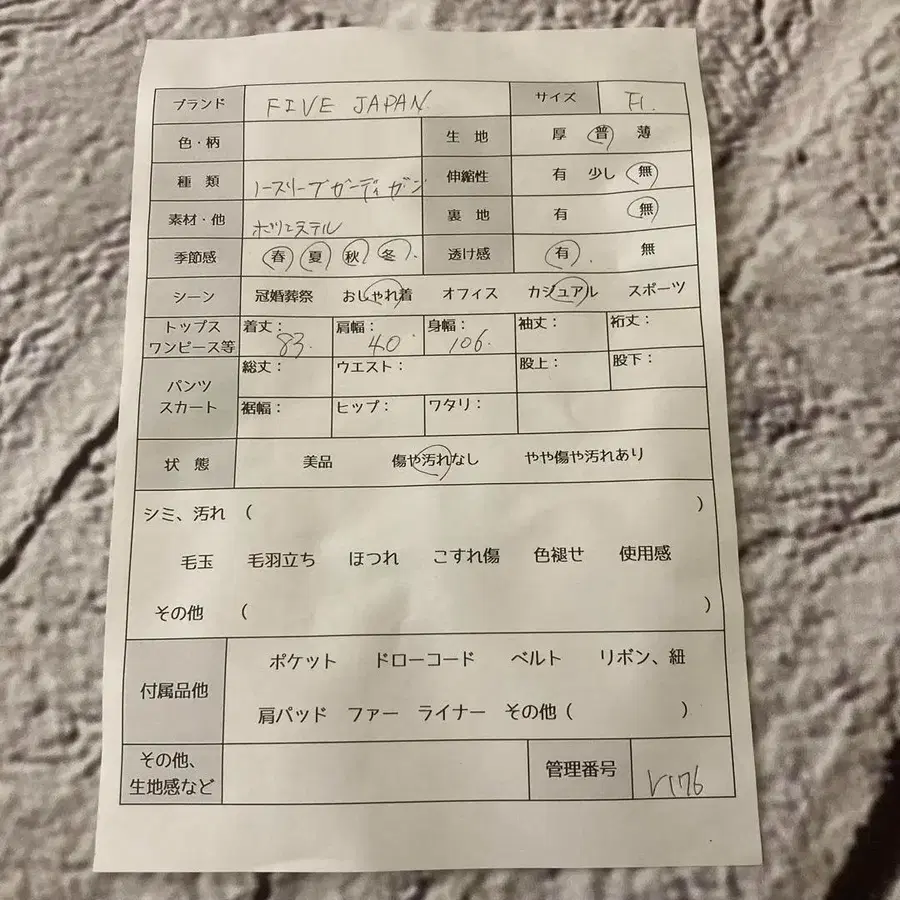 ブランド FIVE JAPAN. サイズ F.
色・柄 生 地 厚 普 薄
種 類 ノースリーブガーディガン 伸縮性 有 少し 無
素材・他 ポリエステル 裏 地 有 無
季節感 春 夏 秋 冬 透け感 有 無
シーン 冠婚葬祭 おしゃれ着 オフィス カジュアル スポーツ
トップス ワンピース等 着丈： 83. 肩幅： 40. 身幅： 106. 袖丈： 裄丈：
パンツ スカート 総丈： ウエスト： 股上： 股下：
裾幅： ヒップ： ワタリ：
状 態 美品 傷や汚れなし やや傷や汚れあり
シミ、汚れ （ ）
毛玉 毛羽立ち ほつれ こすれ傷 色褪せ 使用感
その他 （ ）
付属品他 ポケット ドローコード ベルト リボン、紐
肩パッド ファー ライナー その他（ ）
その他、
生地感など 管理番号